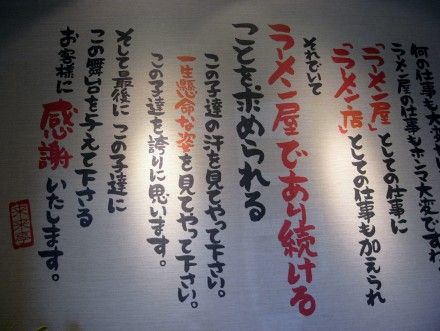 何の仕事も大変
ラーメン屋の仕事もホンマ大変ですわ
「ラーメン屋」としての仕事に
「ラーメン店」としての仕事も加えられ
それでいて
ラーメン屋であり続ける
ことを求められる
この子達の汗を見てやって下さい。
一生懸命な姿を見てやって下さい。
この子達を誇りに思います。
そして最後に この子達に
この舞台を与えて下さる
お客様に 感謝 いたします。